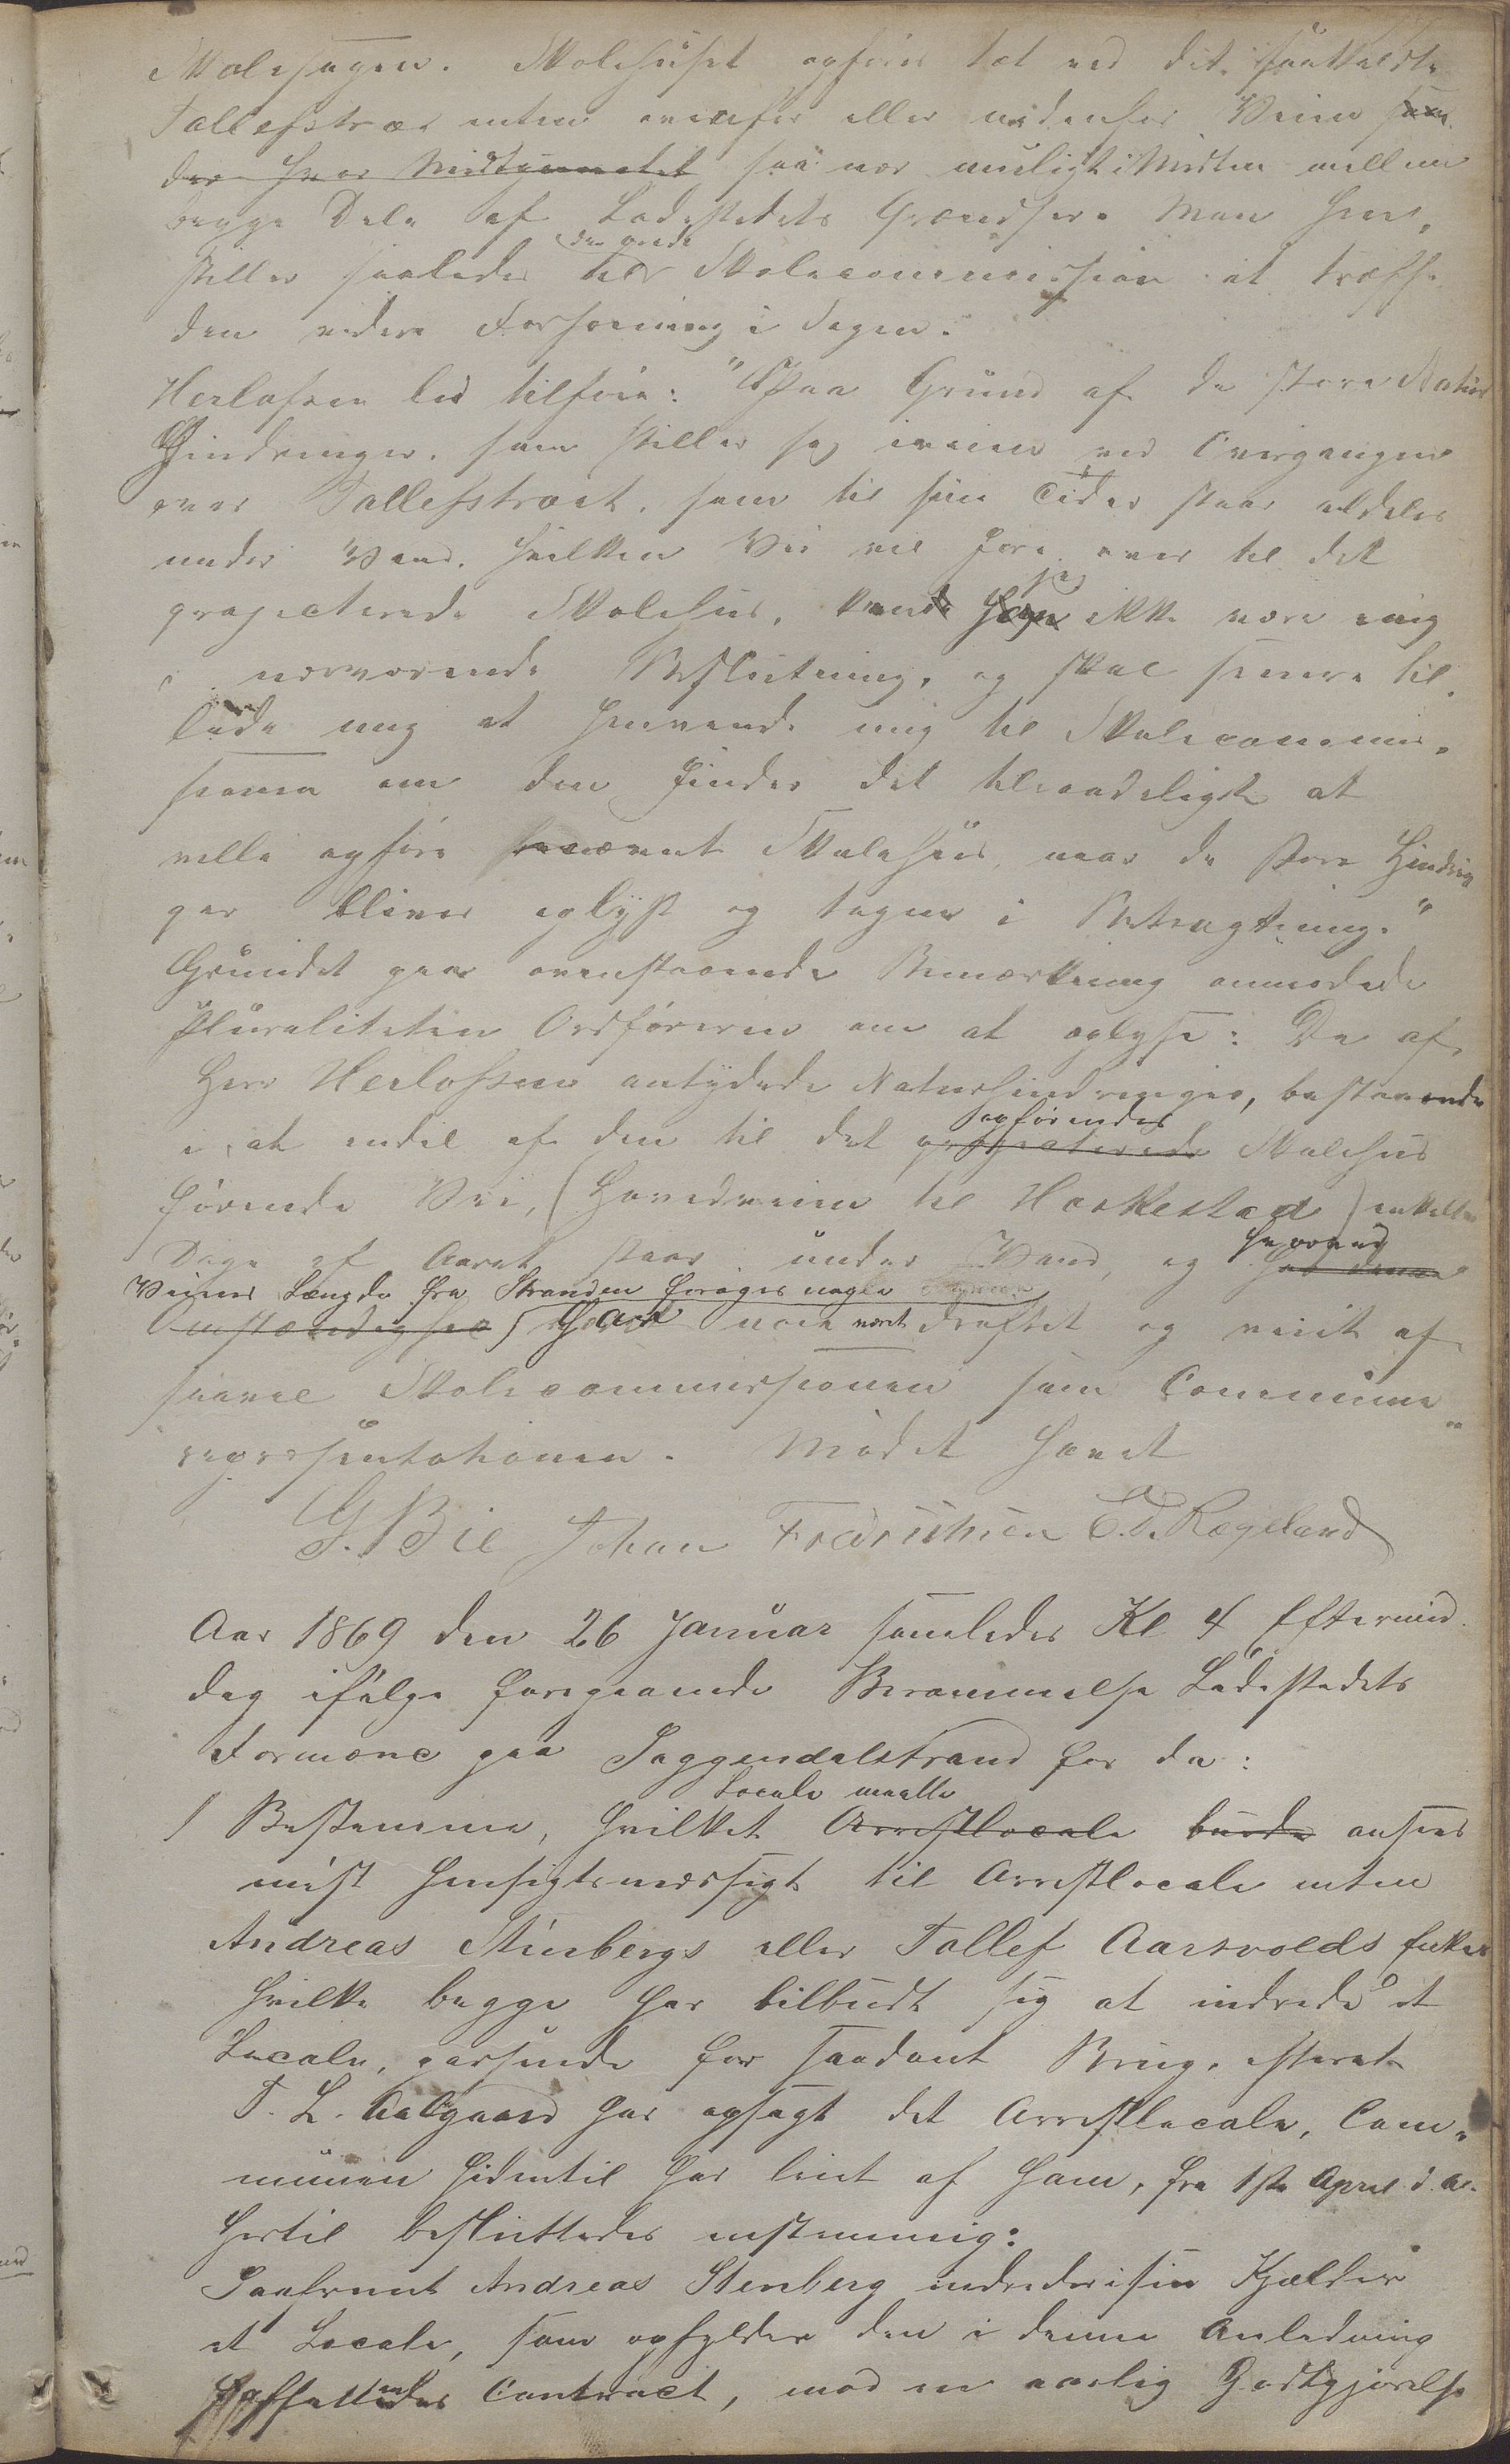 Skolesagen. Skolehuset opføres tæt ved det saakaldte
Tallefstræ enten ovenfor eller nedenfor Veien som
der hvor Midtpunctet saa nær muligt i Midten mellem
begge Dele af Ladestedets Grændser. Man hen-
den ærede
stiller saaledes til Skolecommission at træffe
den videre Forføining i Sagen.
Herlofsen lod tilføie: "Paa Grund af de store Natur
Hindringer, som stiller sig iveien ved Overgangen
over Tallefstræet, som til sine Tider staar aldeles
under Vand, hvilken Vei vil føre over til det
jeg
projecterede Skolehus, kunde han ikke være enig
i nærværende Beslutning, og skal senere til-
lade mig at henvende mig til Skolecommis-
sionen om den finder det tilraadeligt at
ville opføre nævnt Skolehuus, naar de store Hindrin
ger bliver oplyst og tagen i Betragtning."
Grundet paa ovenstaaende Bemærkning anmodede
Pluraliteten Ordføreren om at oplyse: De af
Herr Herlofsen antydede Naturhindringer, bestaaende
opførendes
i, at endel af den til det projecterede Skolehus
førende Vei, (Hovedveien til Haskestad) enkelte
Dage af Aaret staar under Vand, og
Veiens Længde fra Stranden forøges nogle
Omstændighed har været drøftet og veiet af
saavel Skolecommissionen som Commune-
repræsentationen. Mødet hævet
G. Bie Johan Fredrichsen E. T. Rægeland
Aar 1869 den 26 Januar samledes Kl 4 Eftermid
dag ifølge foregaaende Berammelse Ladestedets
Formænd paa Soggendalstrand for da:
Locale maatte
1 Bestemme, hvilket Arrestlocale burde ansees
mest hensigtsmæssigt til Arrestlocale enten
Andreas Stenbergs eller Tallef Aarsvolds
hvilke begge har tilbudt sig at indrede et
Locale, passende for saadant Brug, efterat
T. L. Aalgaard har opsagt det Arrestlocale, Com-
munen hidentil har leiet af ham, fra 1ste April d. A.
Hertil besluttedes enstemmig:
Saafremt Andreas Stenberg indreder i sin Kjælder
et Locale, som opfylder den i denne Anledning
affattendes Contract, mod en aarlig Godtgjørelse